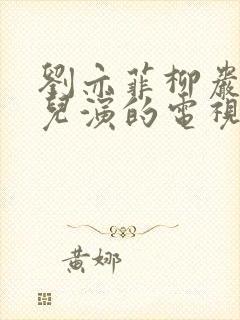 劉亦菲柳巖
兒演的電視
黃娜